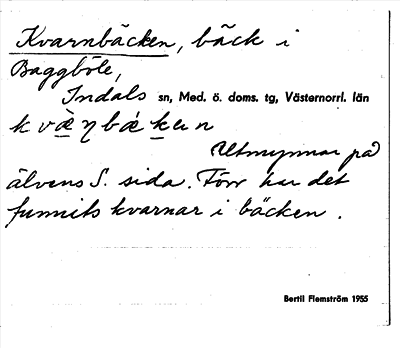 Kvarnbäcken, bäck i
Baggböle,
Indals sn, Med. ö. doms. tg, Västernorrl. län
kvæ̀ŋbǽken
Utmynnar på
älvens S. sida. Förr har det
funnits kvarnar i bäcken.
Bertil Flemström 1955